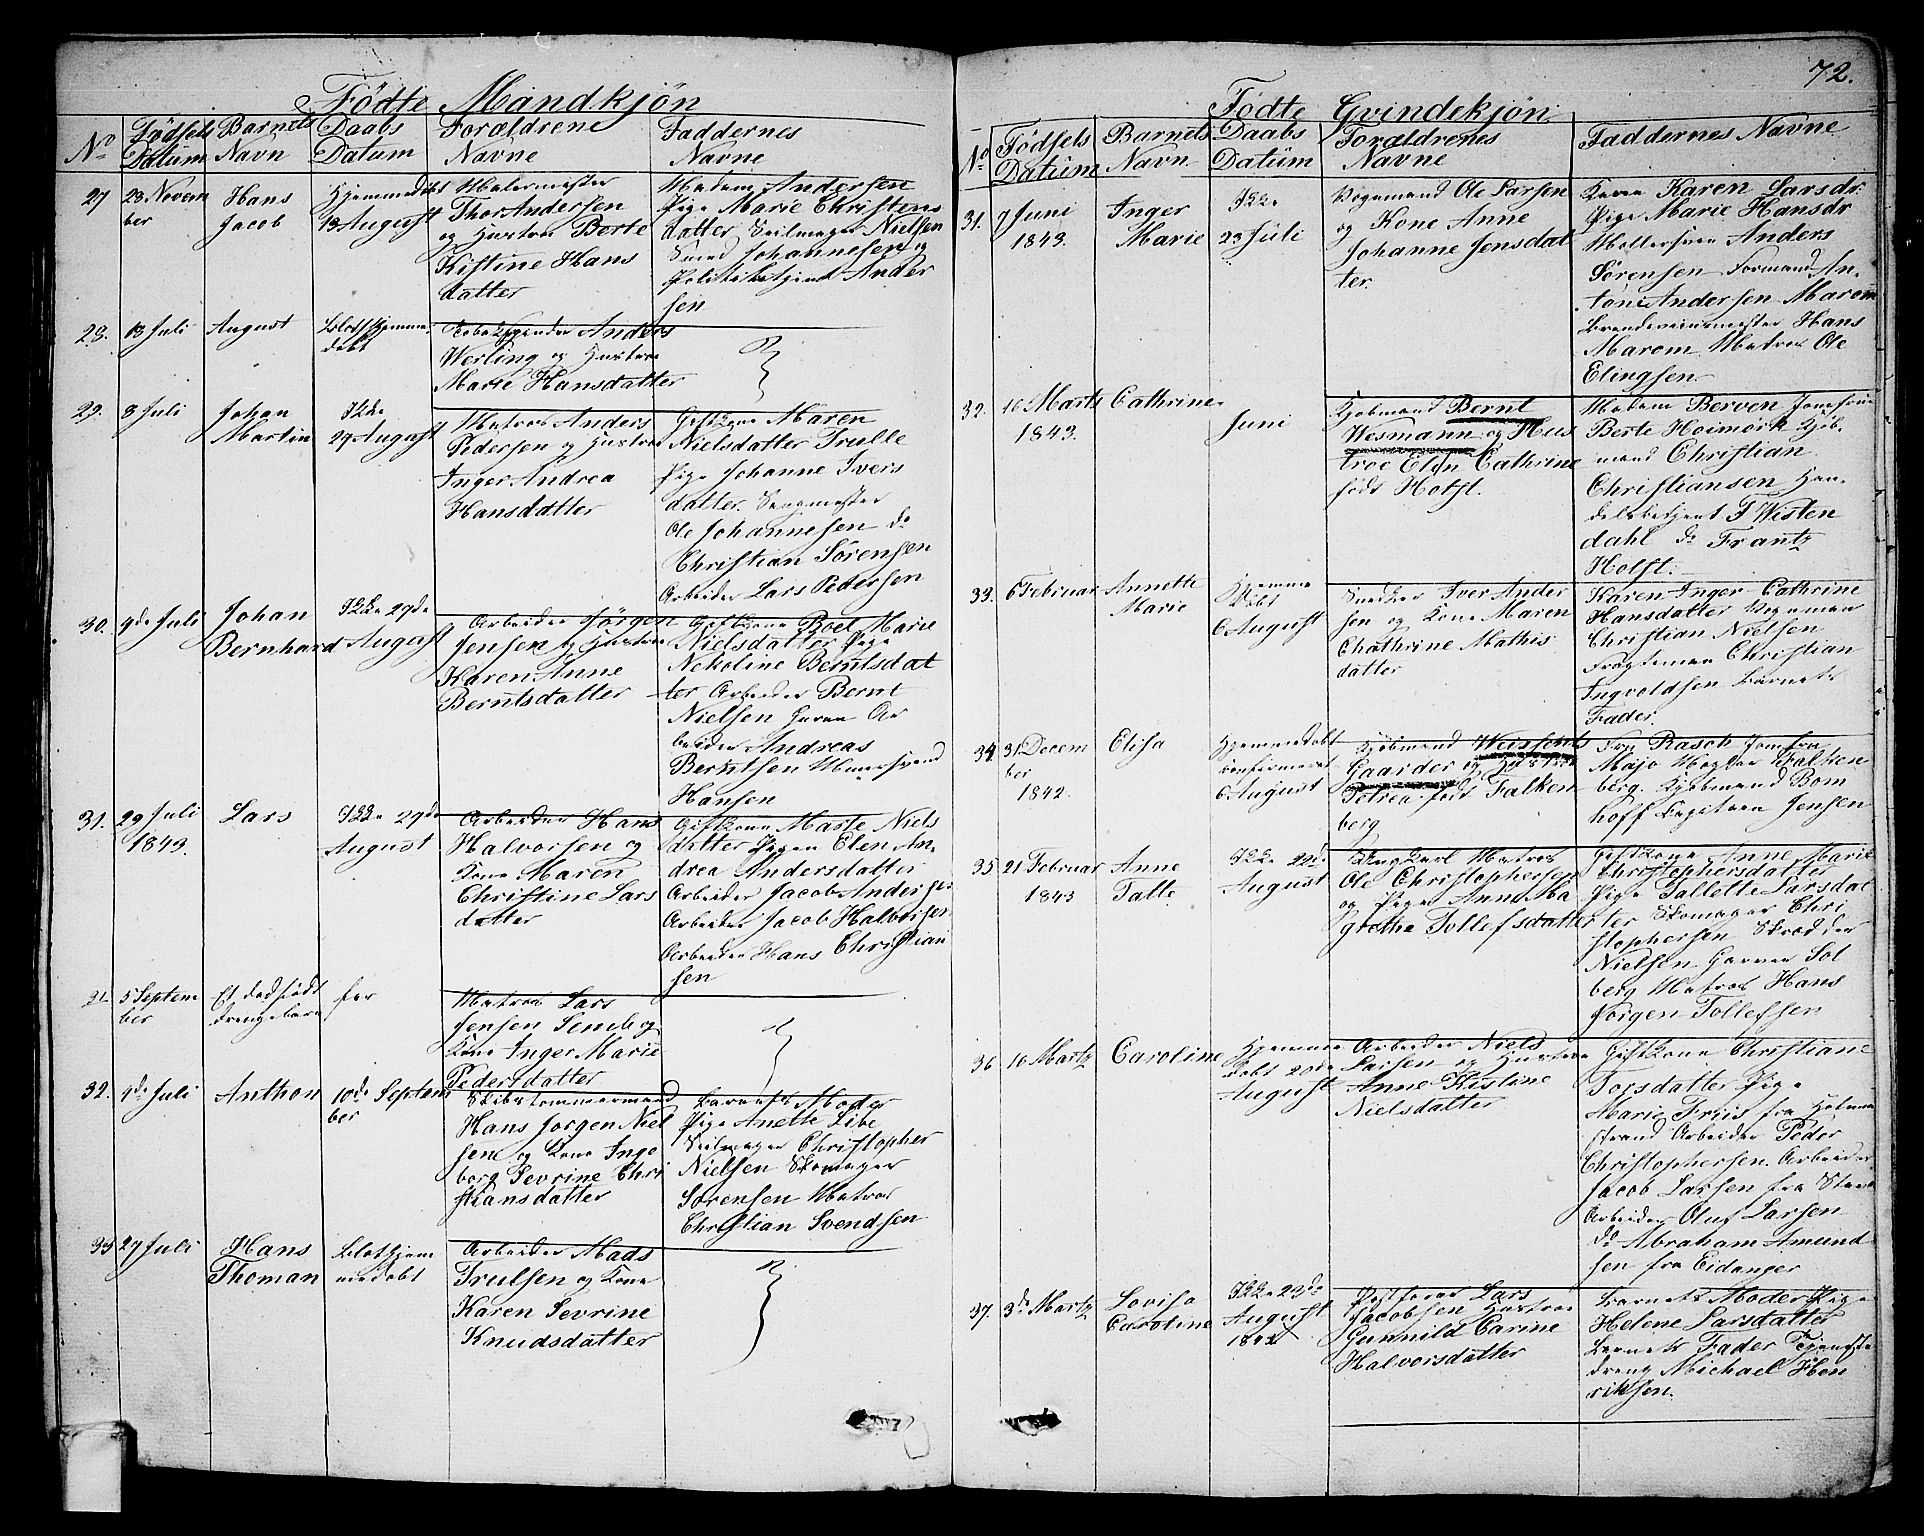 Fødte Mandkjøn
No
Fødsels Datum
Barnets Navn
Daabs Datum
Forældrene Navne
Faddernes Navne
27
23 Novem
ber
Hans
Jacob
Hjemmedøbt
13 August
Malermester
Thor Andersen
og Hustroe Berte
Kistine Hans
datter
Madam Andersen
Pige Marie Christens
datter Seilmager Nielsen
Smed Johannesen og
Politibetjent Ander
sen
28.
13 Juli
August
Blot Hjemme
døbt
Anders
Werling og Hustroe
Marie Hansdatter
29.
8 Juli
Johan
Martin
Kirke
29 August
Matros Anders
Pedersen og Hustroe
Inger Andrea
Hansdatter
Giftkone Maren
Nielsdatter Trulle
Pige Johanne Ivers
datter
Ole Johannesen do
Christian Sörensen
Arbeider Lars Pedersen
30.
9de Juli
Johan
Bernhard
29de
August
Arbeider Jörgen
Jensen og Hustroe
Karen Anne
Berntsdatter
Giftkone Boel Marie
Nielsdatter Pige
Nekoline Berntsdat
ter Arbeider Bernt
Nielsen Ar
beider Andreas
Berntsen Muursvend
Hansen
31.
29 Juli
1843.
Lars
29de
August
Arbeider Hans
Halvorsen og
Kone Maren
Christine Lars
datter
Giftkone Marte Niels
datter Pigen Elen An
drea Andersdatter
Arbeider Jacob Andersen
Arbeider Jacob Halvorsen
Arbeider Hans Christian
sen
31.
5 Septem
ber
Et dødfødt
drengebarn
Matros Lars
Jensen og
Kone Inger Marie
Pedersdatter
32.
9de Juli
Anthon
10de Septem
ber
Skibstømmermand
Hans Jorgen Niel
sen og Kone Inge
borg Sevrine Chri
stiansdatter
Barnets Moder
Pige Anette Libe
Seilmager Christopher
Nielsen Skomager
Sörensen Matros
Christian Svendsen
33
27 Juli
Hans
Thoman
Blot Hjem
medøbt
Arbeider Mads
Trulsen og Kone
Karen Sevrine
Knudsdatter
72.
Fødte Qvindekjön
No
Fødsels Datüm
Barnets Navn
Daabs Datüm
Forældrenes Navne
Faddernes Navne
31.
7 Juni
1843.
Inger
Marie
Kirke
23 Juli
Vognmand Ole Larsen
og Kone Anne
Johanne Jensdat
ter.
Karen Larsdr
Pige Marie Hansdr
Møllersven Anders
Sörensen Formand An
tone Andersen Marom
Brændeviinsmester Hans
Marom Matros Ole
Elingsen
32.
16 Marts
1843.
Cathrine
Juni
Kjøbmand Bernt
Wesmann og Hus
troe Elen Cathrine
født Holst.
Madam Berven Jomfrue
Berte Hoimörk Kjøb
mand Christian
Christiansen Han
delsbetjent F Wisten
dahl do Frantz
Holst.
33.
6 Februar
Annette
Marie
Hjemme
døbt
6 August
Snedker Iver Ander
sen og Kone Maren
Chathrine Mathis
datter
Karen Inger Cathrine
Hansdatter
Christian Nielsen
Christian
Ingvoldsen Barnets
Fader.
34.
31 Decem
ber
1842.
Elisa
Hjemmedøbt
confirmeret
6 August
Kjøbmand
Gaarder og Hustroe
Petrea født Falken
berg
Fru Rasch Jomfru
Maja Falken
berg. Kjøbmand Bom
hoff Jensen
35
21 Februar
1843
Anne
Talte
Kirke 20de
August
Ungkarl Matros
Ole Christophersen
og Pige Anne Ma
grethe Tollefsdatter
Giftkone Anne Marie
Christophersdatter
Pige Tallette Larsdat
ter Skomager Chri
stophersen Skrædder
Nielsen Garver Sol
berg Matros Hans
Jorgen Tollefsen
36
16 Martz
Caroline
Hjemme
døbt 20de
August
Arbeider Niels
Larsen og Hustroe
Anne Kistine
Nielsdatter
Giftkone Christiane
Torsdatter Pige
Marie Friis fra Holme
strand Arbeider Peder
Christophersen. Arbeider
Jacob Larsen fra
Arbeider Oluf Larsen
do Abraham Amund
sen fra Eidanger
37.
3de Martz
Lovisa
Carotine
Kirke 23de
August
1842
Lars
Jacobsen Hustroe
Gunnild Carine
Halvorsdatter
Barnets Moder Pige
Helene Larsdatter
Barnets Fader Tjeneste
dreng Michael Hen
riksen.